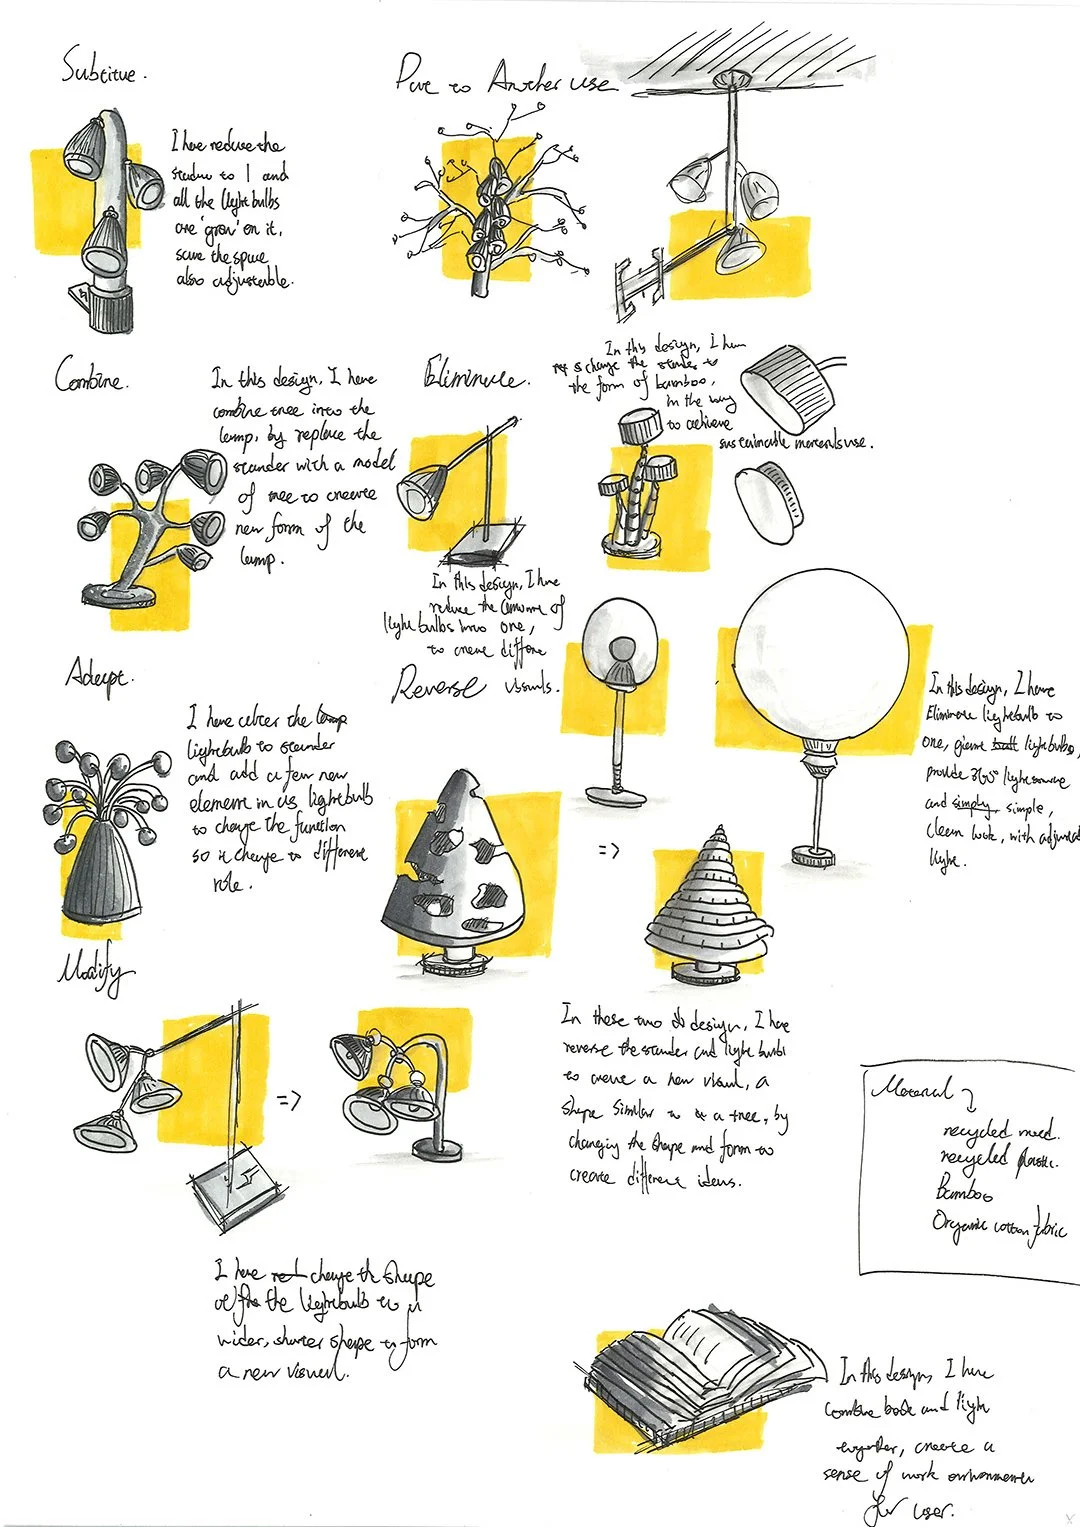 Subtitue.
I have reduce the
stander to 1 and
all the lightbulbs
are 'grow' on it,
save the space
also adjustable.
Put to Another use
Combine.
In this design, I have
combine tree into the
lamp, by replace the
stander with a model
of tree to create
new form of the
lamp.
Eliminate.
In this design, I have
reduce the amount of
light bulbs into one,
to create different
visuals.
In this design, I have
change the stander to
the form of bamboo,
in the way
to achieve
sustainable materials use.
Adapt.
I have alter the lamp
lightbulb to stander
and add a few new
element in as lightbulb
to change the function
so it change to different
role.
Reverse
In this design, I have
Eliminate lightbulb to
one, giant lightbulbs,
provide 360° light source
and simply simple,
clean look, with adjustable
light.
=>
In these two design, I have
reverse the stander and light bulb
to create a new visual, a
shape similar to a tree, by
changing the shape and form to
create different ideas.
Modify
=>
I have change the shape
of the lightbulb to a
wider, shorter shape to form
a new visual.
Material
recycled plastic.
Bamboo
Organic cotton fabric
In this design, I have
combine book and light
together, create a
sense of work environment
for user.